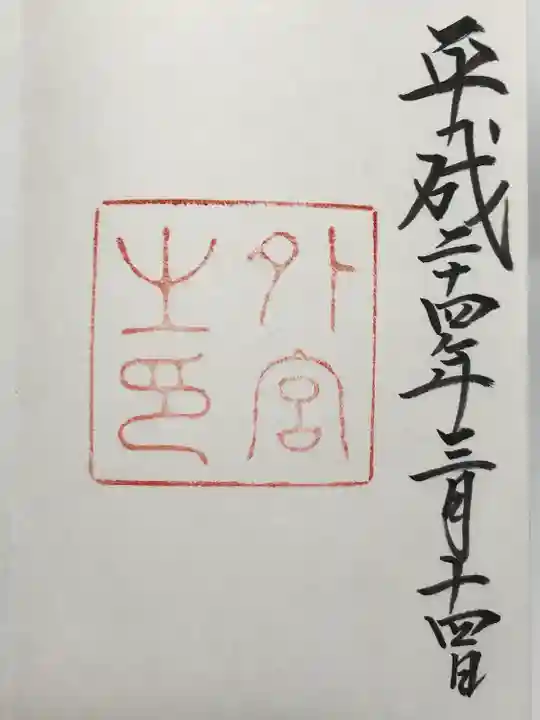 平成二十四年三月十四日
外宮
之印